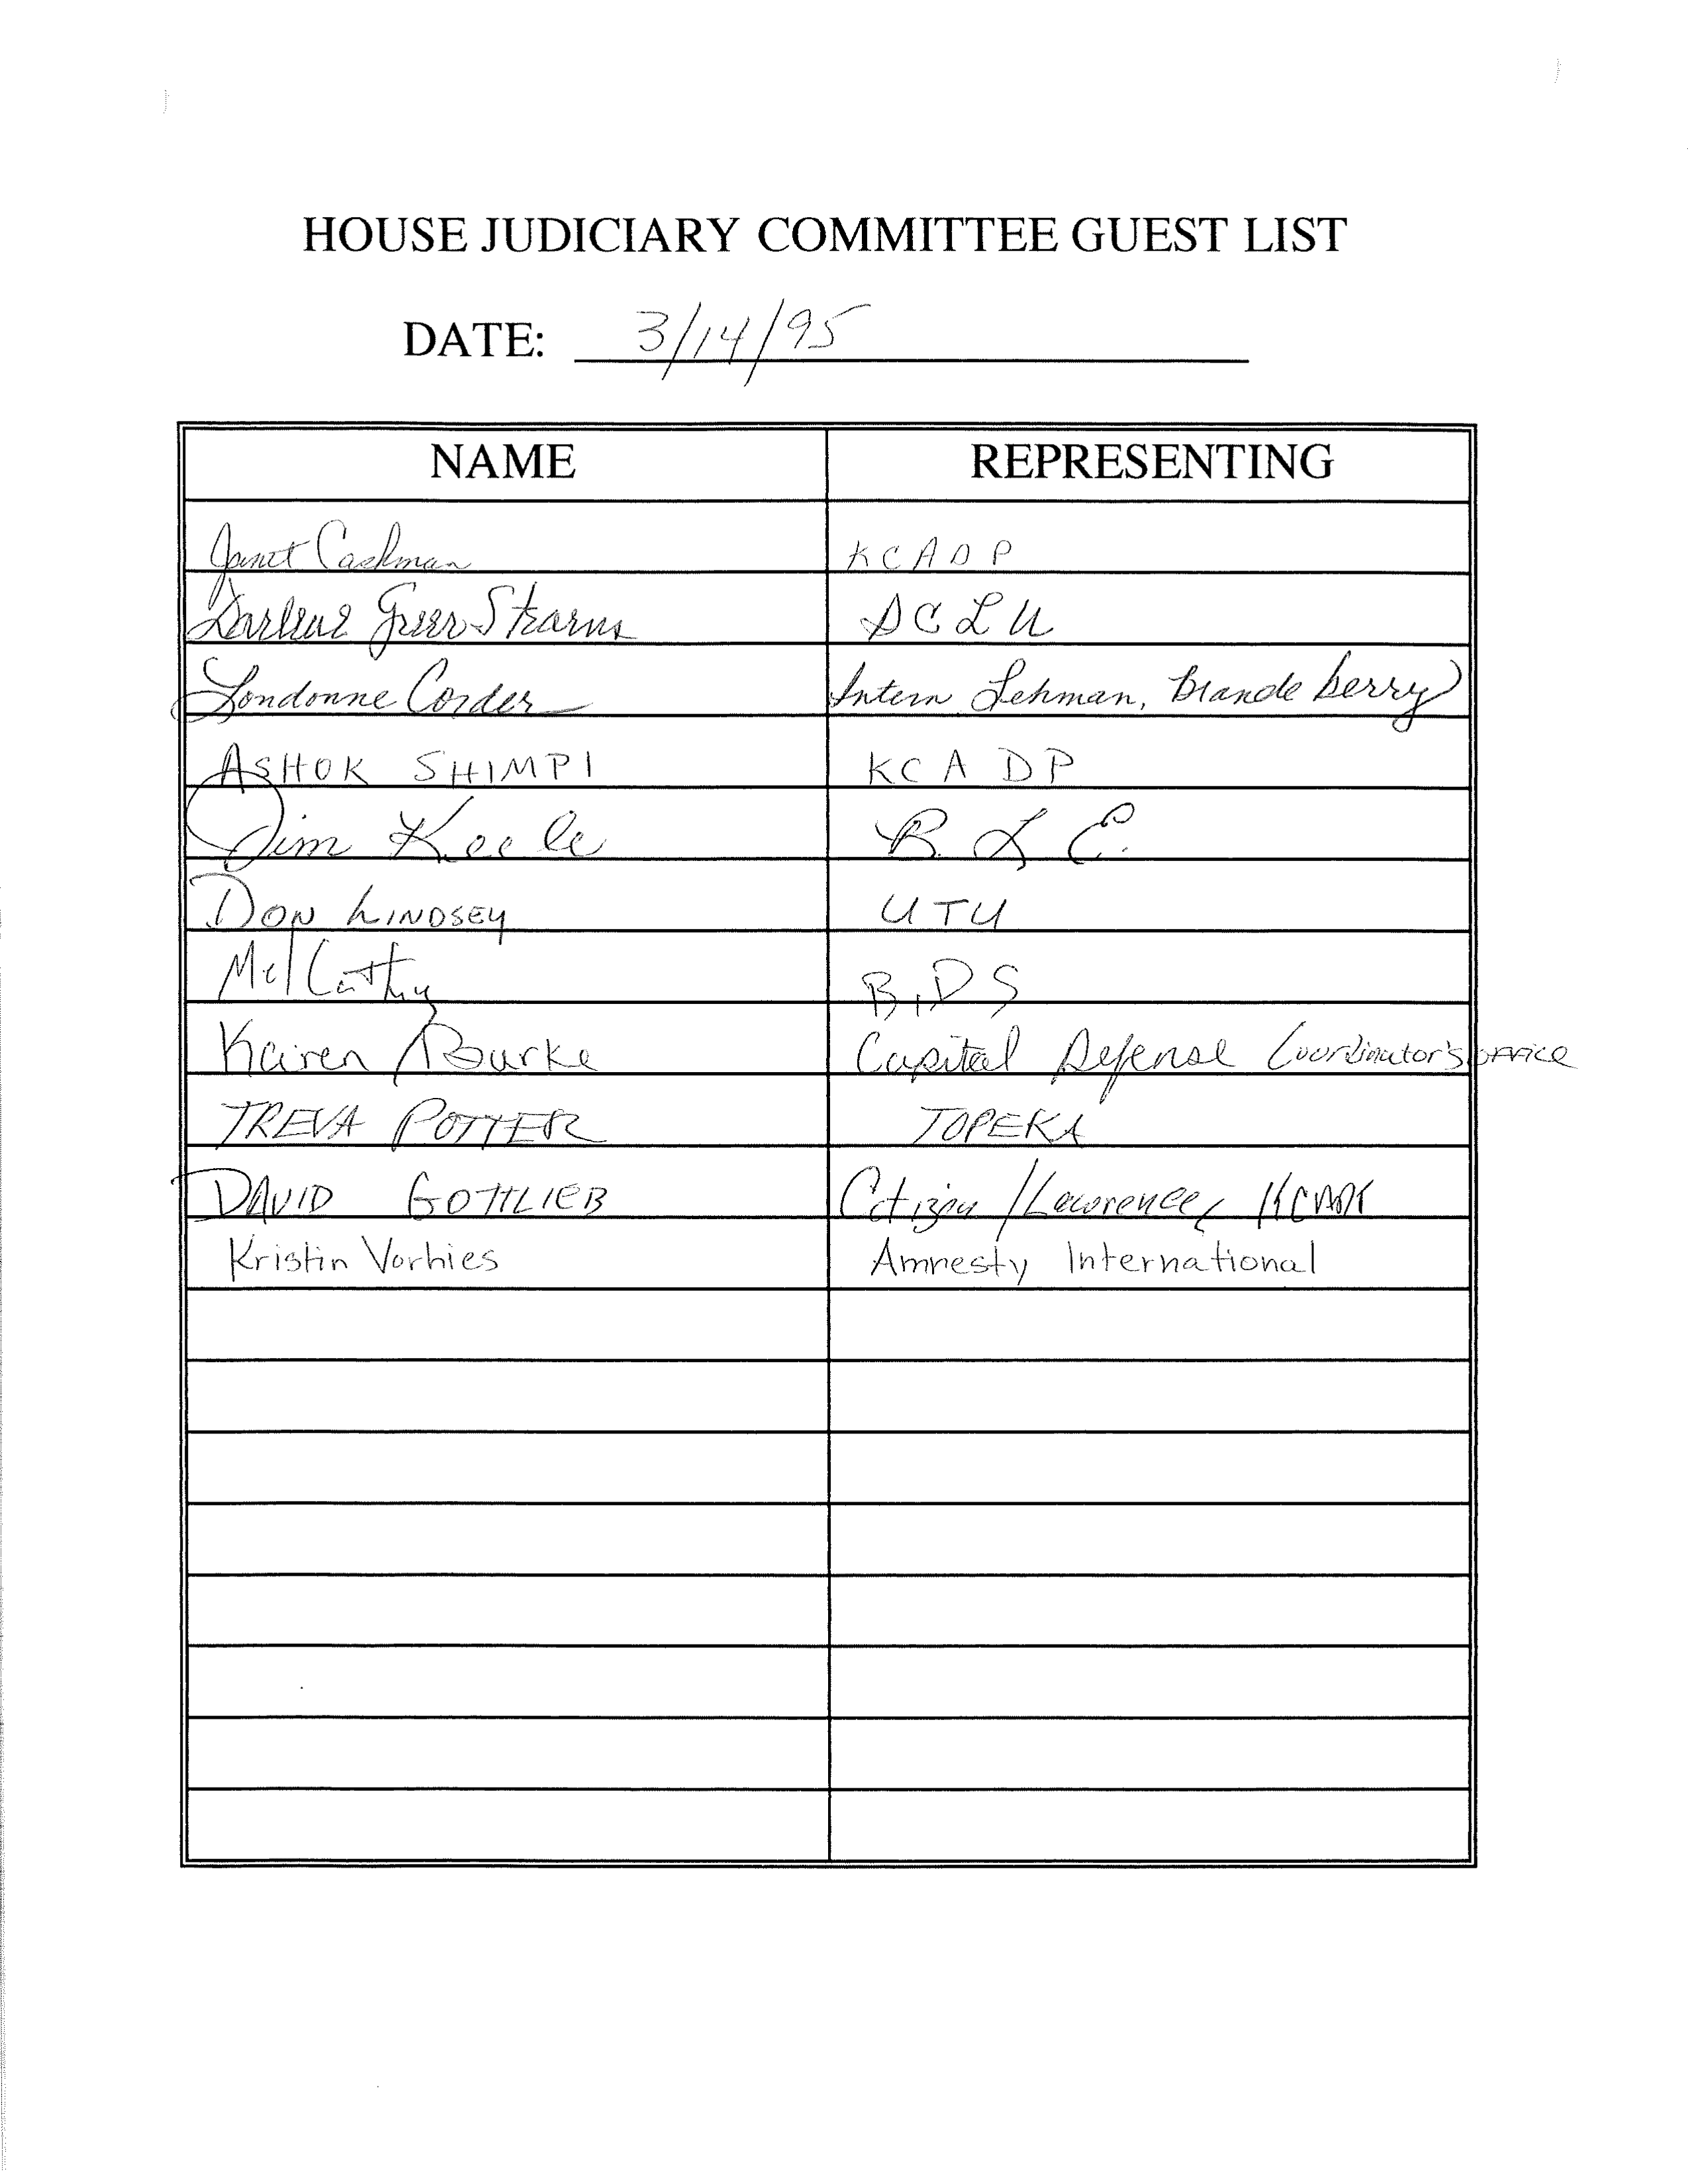 HOUSE JUDICIARY COMMITTEE GUEST LIST
DATE: 3/14/95
NAME REPRESENTING
Janet Cashman KCADP
Darlene Greer Stearns ACLU
Londonne Corder Intern Lehman, Brandeberry
ASHOK SHIMPI KCADP
Jim Keele B.L.E.
DON LINDSEY UTU
BIDS
Karen Burke Capital Defense Coordinator's OFFICE
TREVA POTTER TOPEKA
DAVID GOTTLIEB Citizen / Lawrence,
Kristin Vorhies Amnesty International